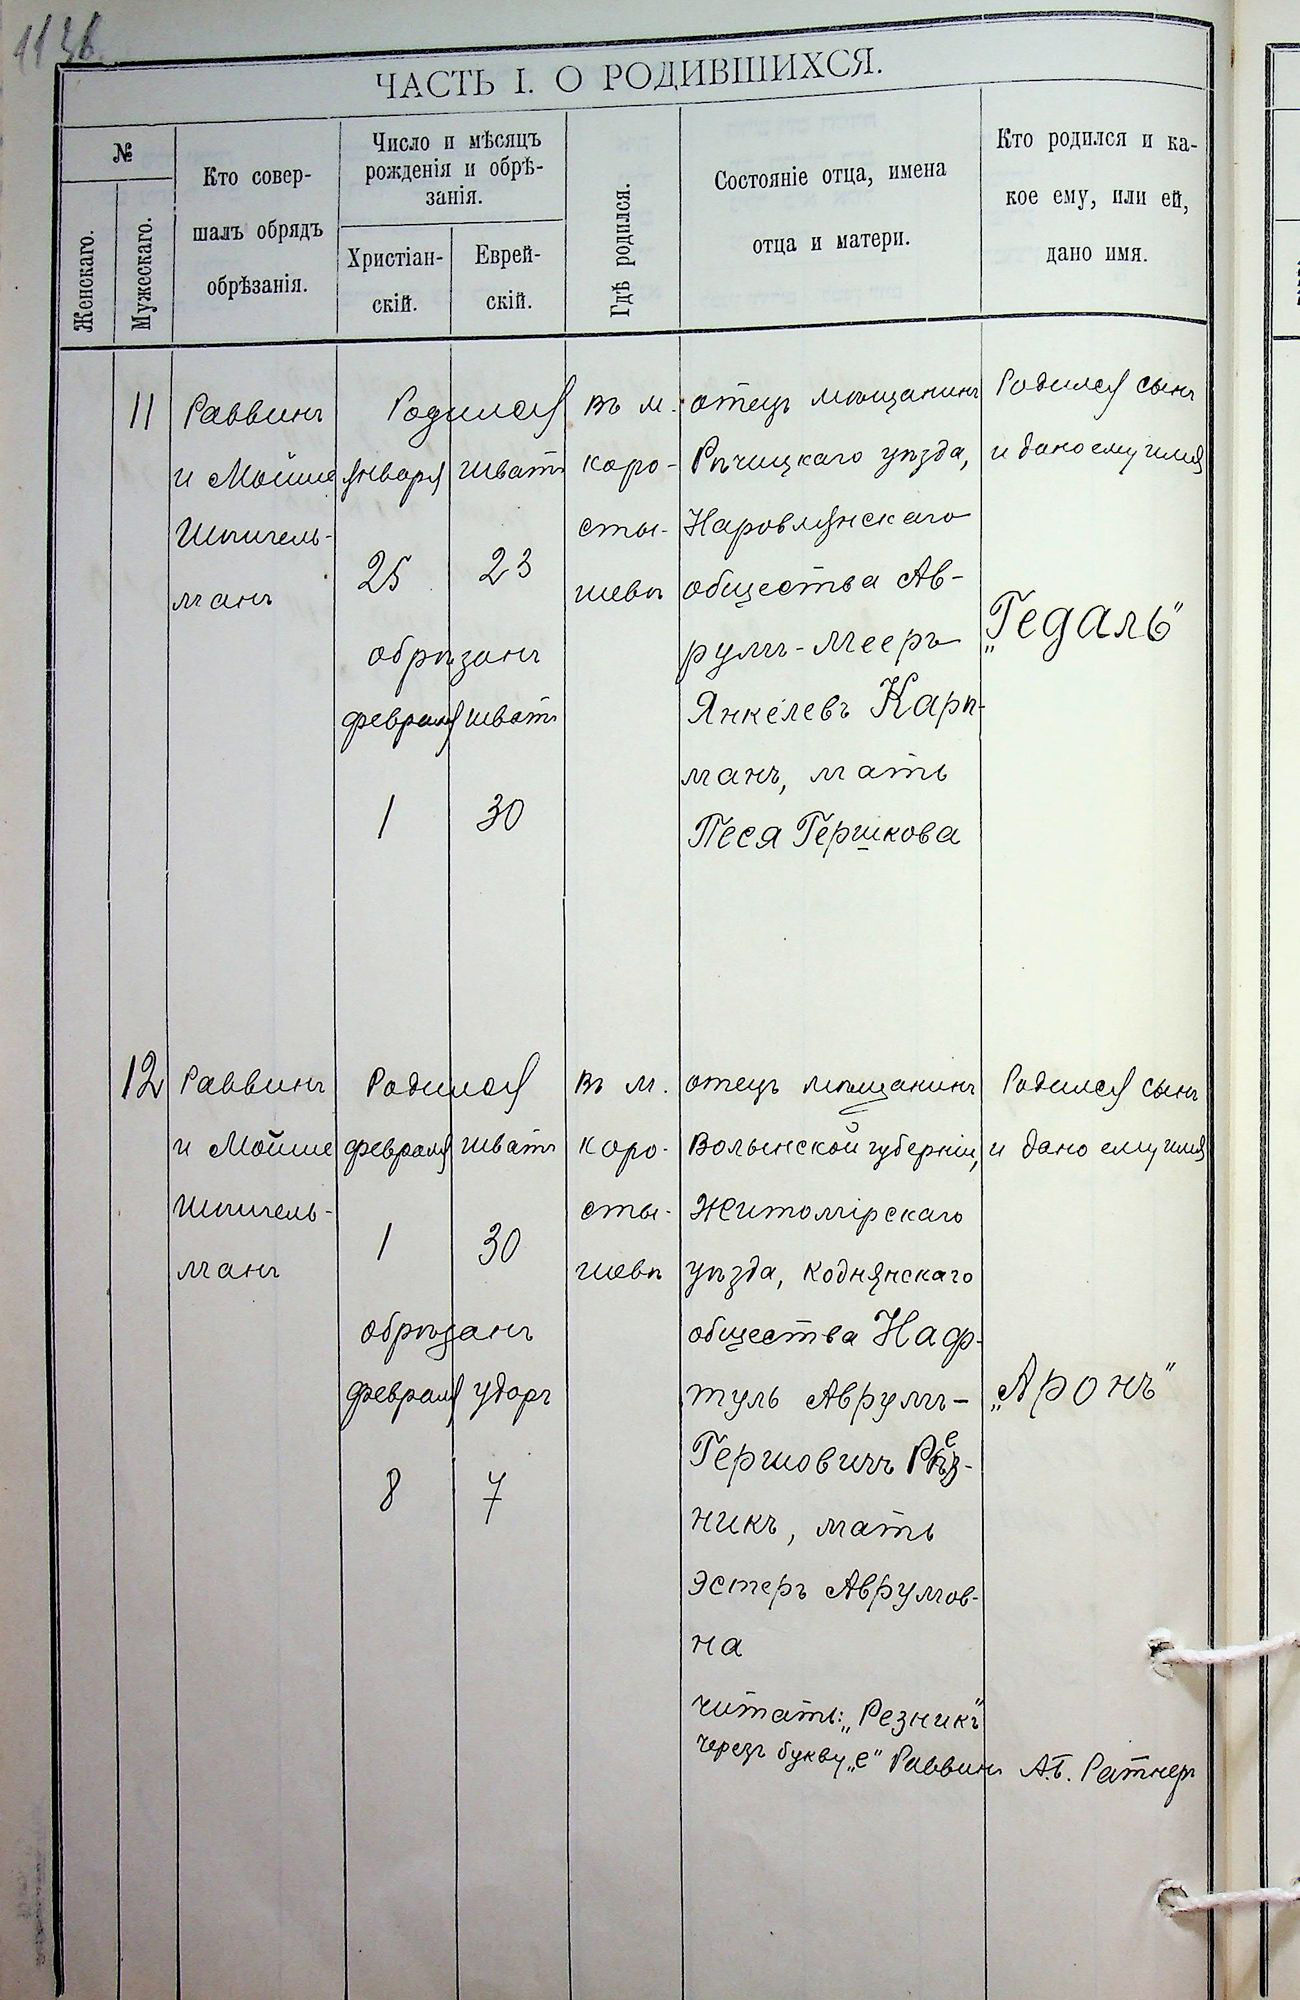 ЧАСТЬ I. О РОДИВШИХСЯ.
№
Женскаго.
Мужескаго.
Кто совер-
шалъ обрядъ
обрѣзанія.
Число и мѣсяцъ
рожденія и обрѣ-
занія.
Христіан-
скій.
Еврей-
скій.
Гдѣ родился.
Состояніе отца, имена
отца и матери.
Кто родился и ка-
кое ему, или ей,
дано имя.
11
Раввинъ
и Мойше
Шпигель-
манъ
Родился
января шватъ
25 23
обрѣзанъ
февраля шватъ
1 30
въ м.
коро-
сты-
шевѣ
отецъ мѣщанинъ
Рѣчицкаго уѣзда,
Наровлянскаго
общества Ав-
румъ-Мееръ
Янкелевъ Карп-
манъ, мать
Песя Гершкова
Родился сынъ
и дано ему имя
„Гедаль"
12
Раввинъ
и Мойше
Шпигель-
манъ
Родился
февраля шватъ
1 30
обрѣзанъ
февраля удоръ
8 7
въ м.
коро-
сты-
шевѣ
отецъ мѣщанинъ
Волынской губерніи,
Житомірскаго
уѣзда, Коднянскаго
общества Наф-
туль Аврумъ-
Гершовичъ Рѣз-
е
никъ, мать
Эстеръ Аврумов-
на
читать: „Резникъ"
черезъ букву „е" Раввинъ А.Б. Ратнеръ
Родился сынъ
и дано ему имя
„Аронъ"